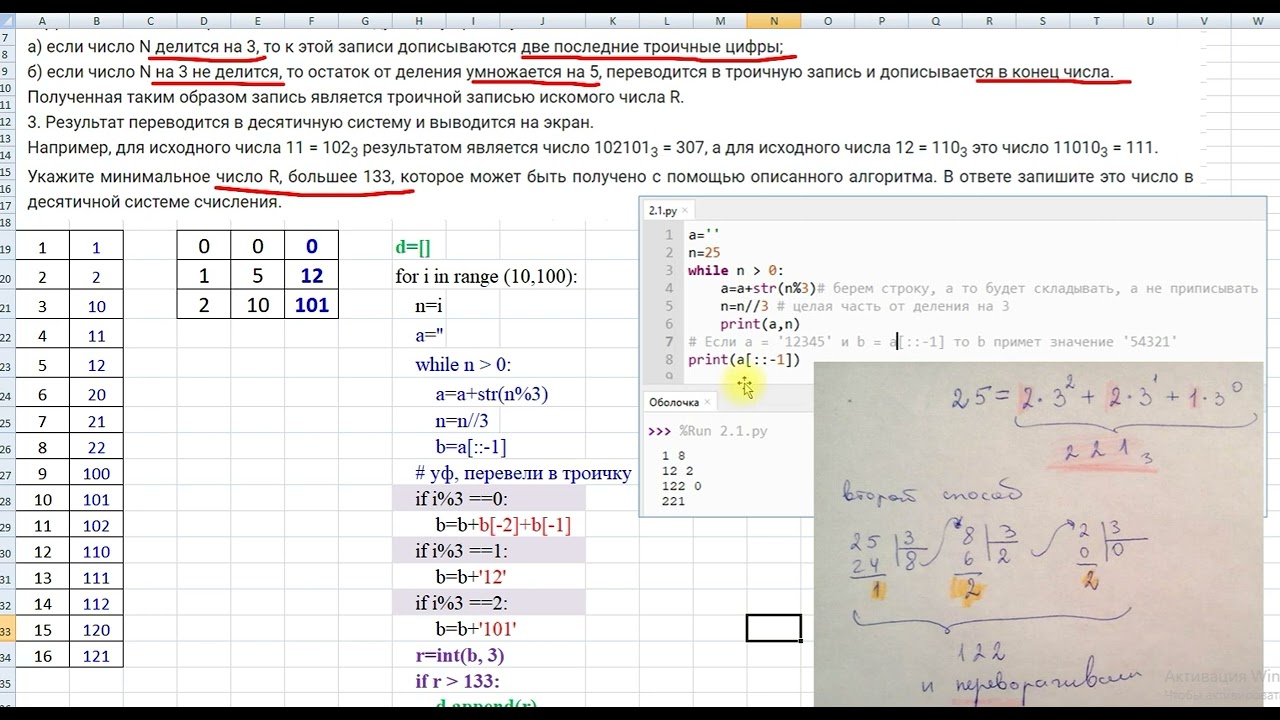 A B C D E F G H I J K L M N O P Q R S T U V W
7
8 а) если число N делится на 3, то к этой записи дописываются две последние троичные цифры;
9 б) если число N на 3 не делится, то остаток от деления умножается на 5, переводится в троичную запись и дописывается в конец числа.
10
11 Полученная таким образом запись является троичной записью искомого числа R.
12 3. Результат переводится в десятичную систему и выводится на экран.
13
14 Например, для исходного числа 11 = 102₃ результатом является число 102101₃ = 307, а для исходного числа 12 = 110₃ это число 11010₃ = 111.
15
16 Укажите минимальное число R, большее 133, которое может быть получено с помощью описанного алгоритма. В ответе запишите это число в
17 десятичной системе счисления.
18
19 1 1 0 0 0 d=[]
20 2 2 1 5 12 for i in range (10,100):
21 3 10 2 10 101 n=i
22 4 11 a=''
23 5 12 while n > 0:
24 6 20 a=a+str(n%3)
25 7 21 n=n//3
26 8 22 b=a[::-1]
27 9 100 # уф, перевели в троичку
28 10 101 if i%3 ==0:
29 11 102 b=b+b[-2]+b[-1]
30 12 110 if i%3 ==1:
31 13 111 b=b+'12'
32 14 112 if i%3 ==2:
33 15 120 b=b+'101'
34 16 121 r=int(b, 3)
35 if r > 133:
d.append(r)
2.1.py ×
1 a=''
2 n=25
3 while n > 0:
4 a=a+str(n%3)# берем строку, а то будет складывать, а не приписывать
5 n=n//3 # целая часть от деления на 3
6 print(a,n)
7 # Если a = '12345' и b = a[::-1] то b примет значение '54321'
8 print(a[::-1])
9
Оболочка ×
>>> %Run 2.1.py
1 8
12 2
122 0
221
25 = 2·3² + 2·3¹ + 1·3⁰
2 2 1₃
второй способ
25 3 8 3 2 3
24 8 6 2 0 0
1 2 2
122
и переворачиваем
Активация Win
Чтобы активировать